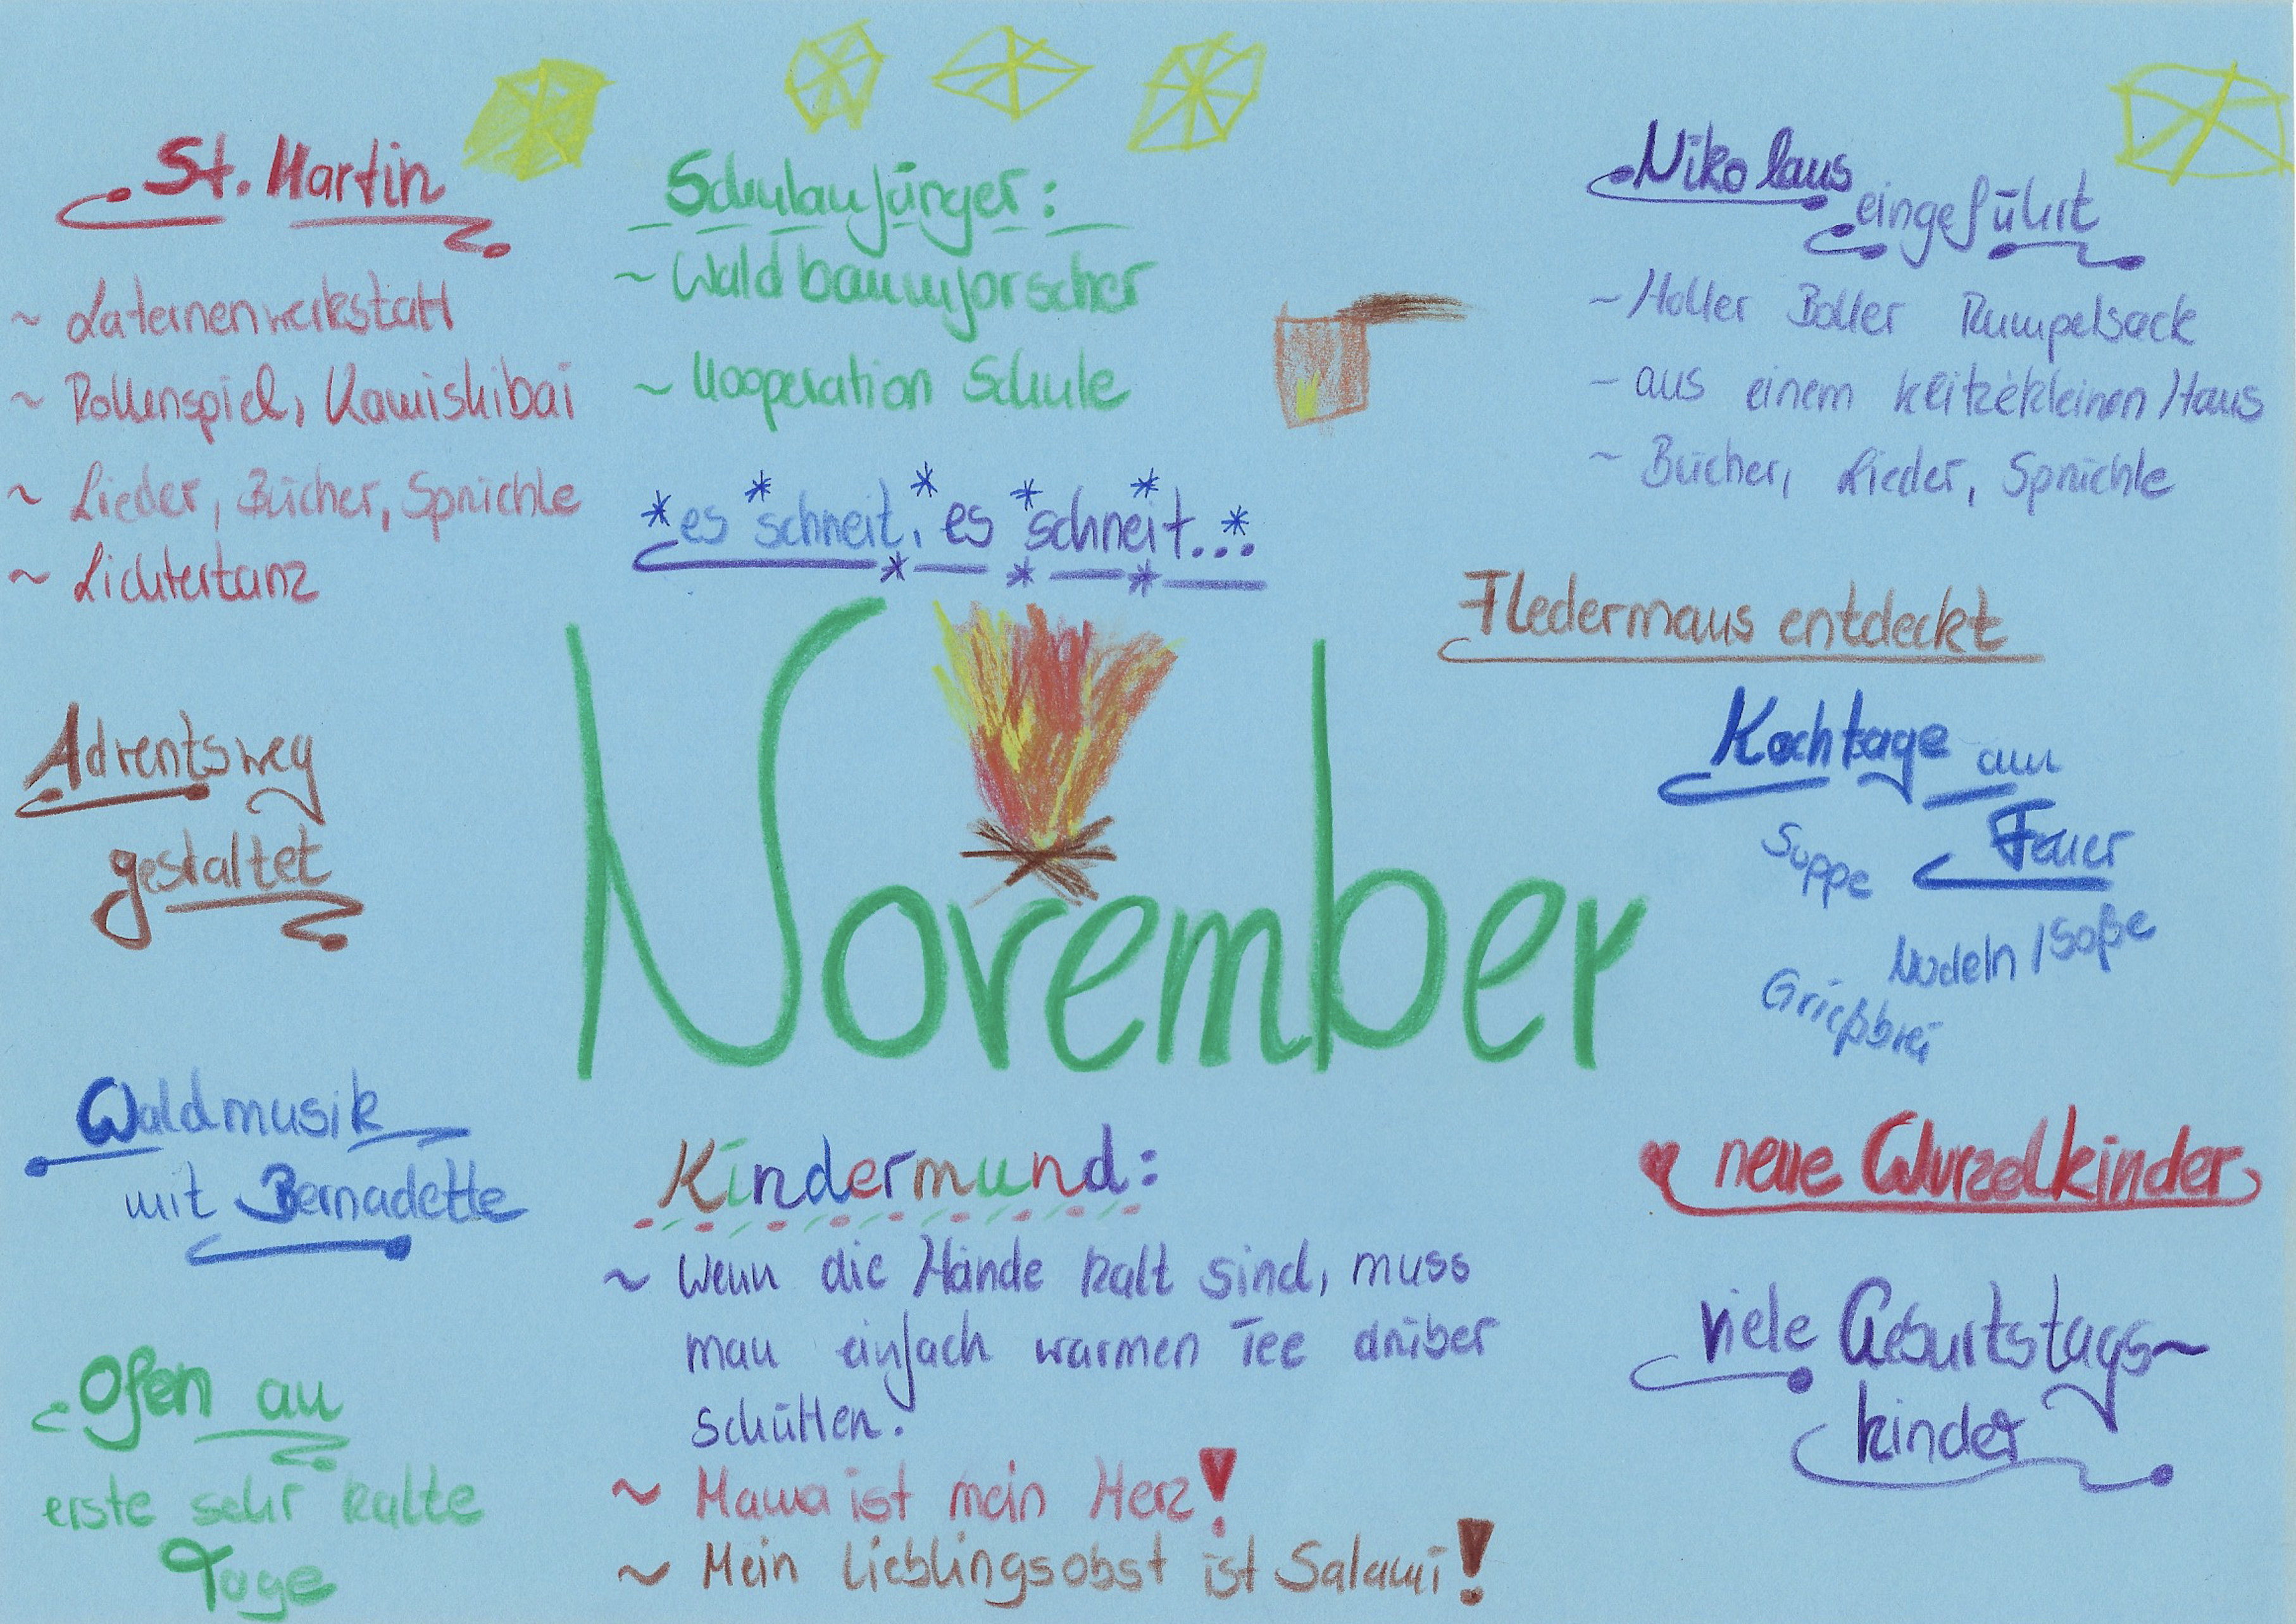 St. Martin
~ Laternenwerkstatt
~ Rollenspiel, Kamishibai
~ Lieder, Bücher, Sprüchle
~ Lichtertanz
Schulanfänger:
~ Waldbaumforscher
~ Kooperation Schule
*es *schneit, *es *schneit...*
Nikolaus
eingeführt
~ Holler Boller Rumpelsack
~ aus einem klitzekleinen Haus
~ Bücher, Lieder, Sprüchle
Fledermaus entdeckt
Adventsweg
gestaltet
November
Kochtage am
Feuer
Suppe
Nudeln / Soße
Grießbrei
Waldmusik
mit Bernadette
Ofen an
erste sehr kalte
Tage
Kindermund:
~ Wenn die Hände kalt sind, muss
man einfach warmen Tee drüber
schütten.
~ Mama ist mein Herz!
~ Mein Lieblingsobst ist Salami!
neue Wurzelkinder
viele Geburtstags~
kinder